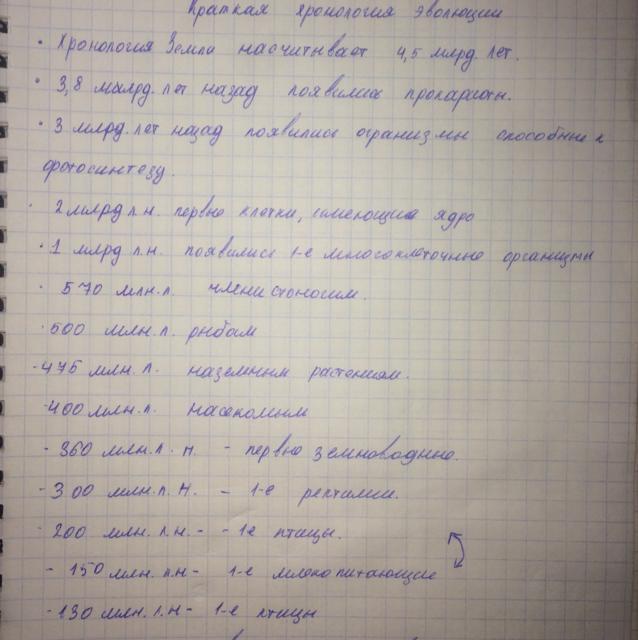 Краткая хронология эволюции
• Хронология Земли насчитывает 4,5 млрд. лет.
• 3,8 млрд. лет назад появились прокариоты.
• 3 млрд. лет назад появились огранизмы способные к
фотосинтезу.
• 2 млрд л.н. первые клетки, имеющие ядро
• 1 млрд л.н. появились 1-е многоклеточные организмы
• 570 млн.л. членистоногим.
• 500 млн.л. рыбам
- 475 млн.л. наземным растениям.
- 400 млн.л. насекомым
- 360 млн.л.н. - первые земноводные.
- 300 млн.л.н. - 1-е рептилии.
- 200 млн.л.н.- - 1е птицы.
- 150 млн.л.н- 1-е млекопитающие
- 130 млн.л.н- 1-е птицы